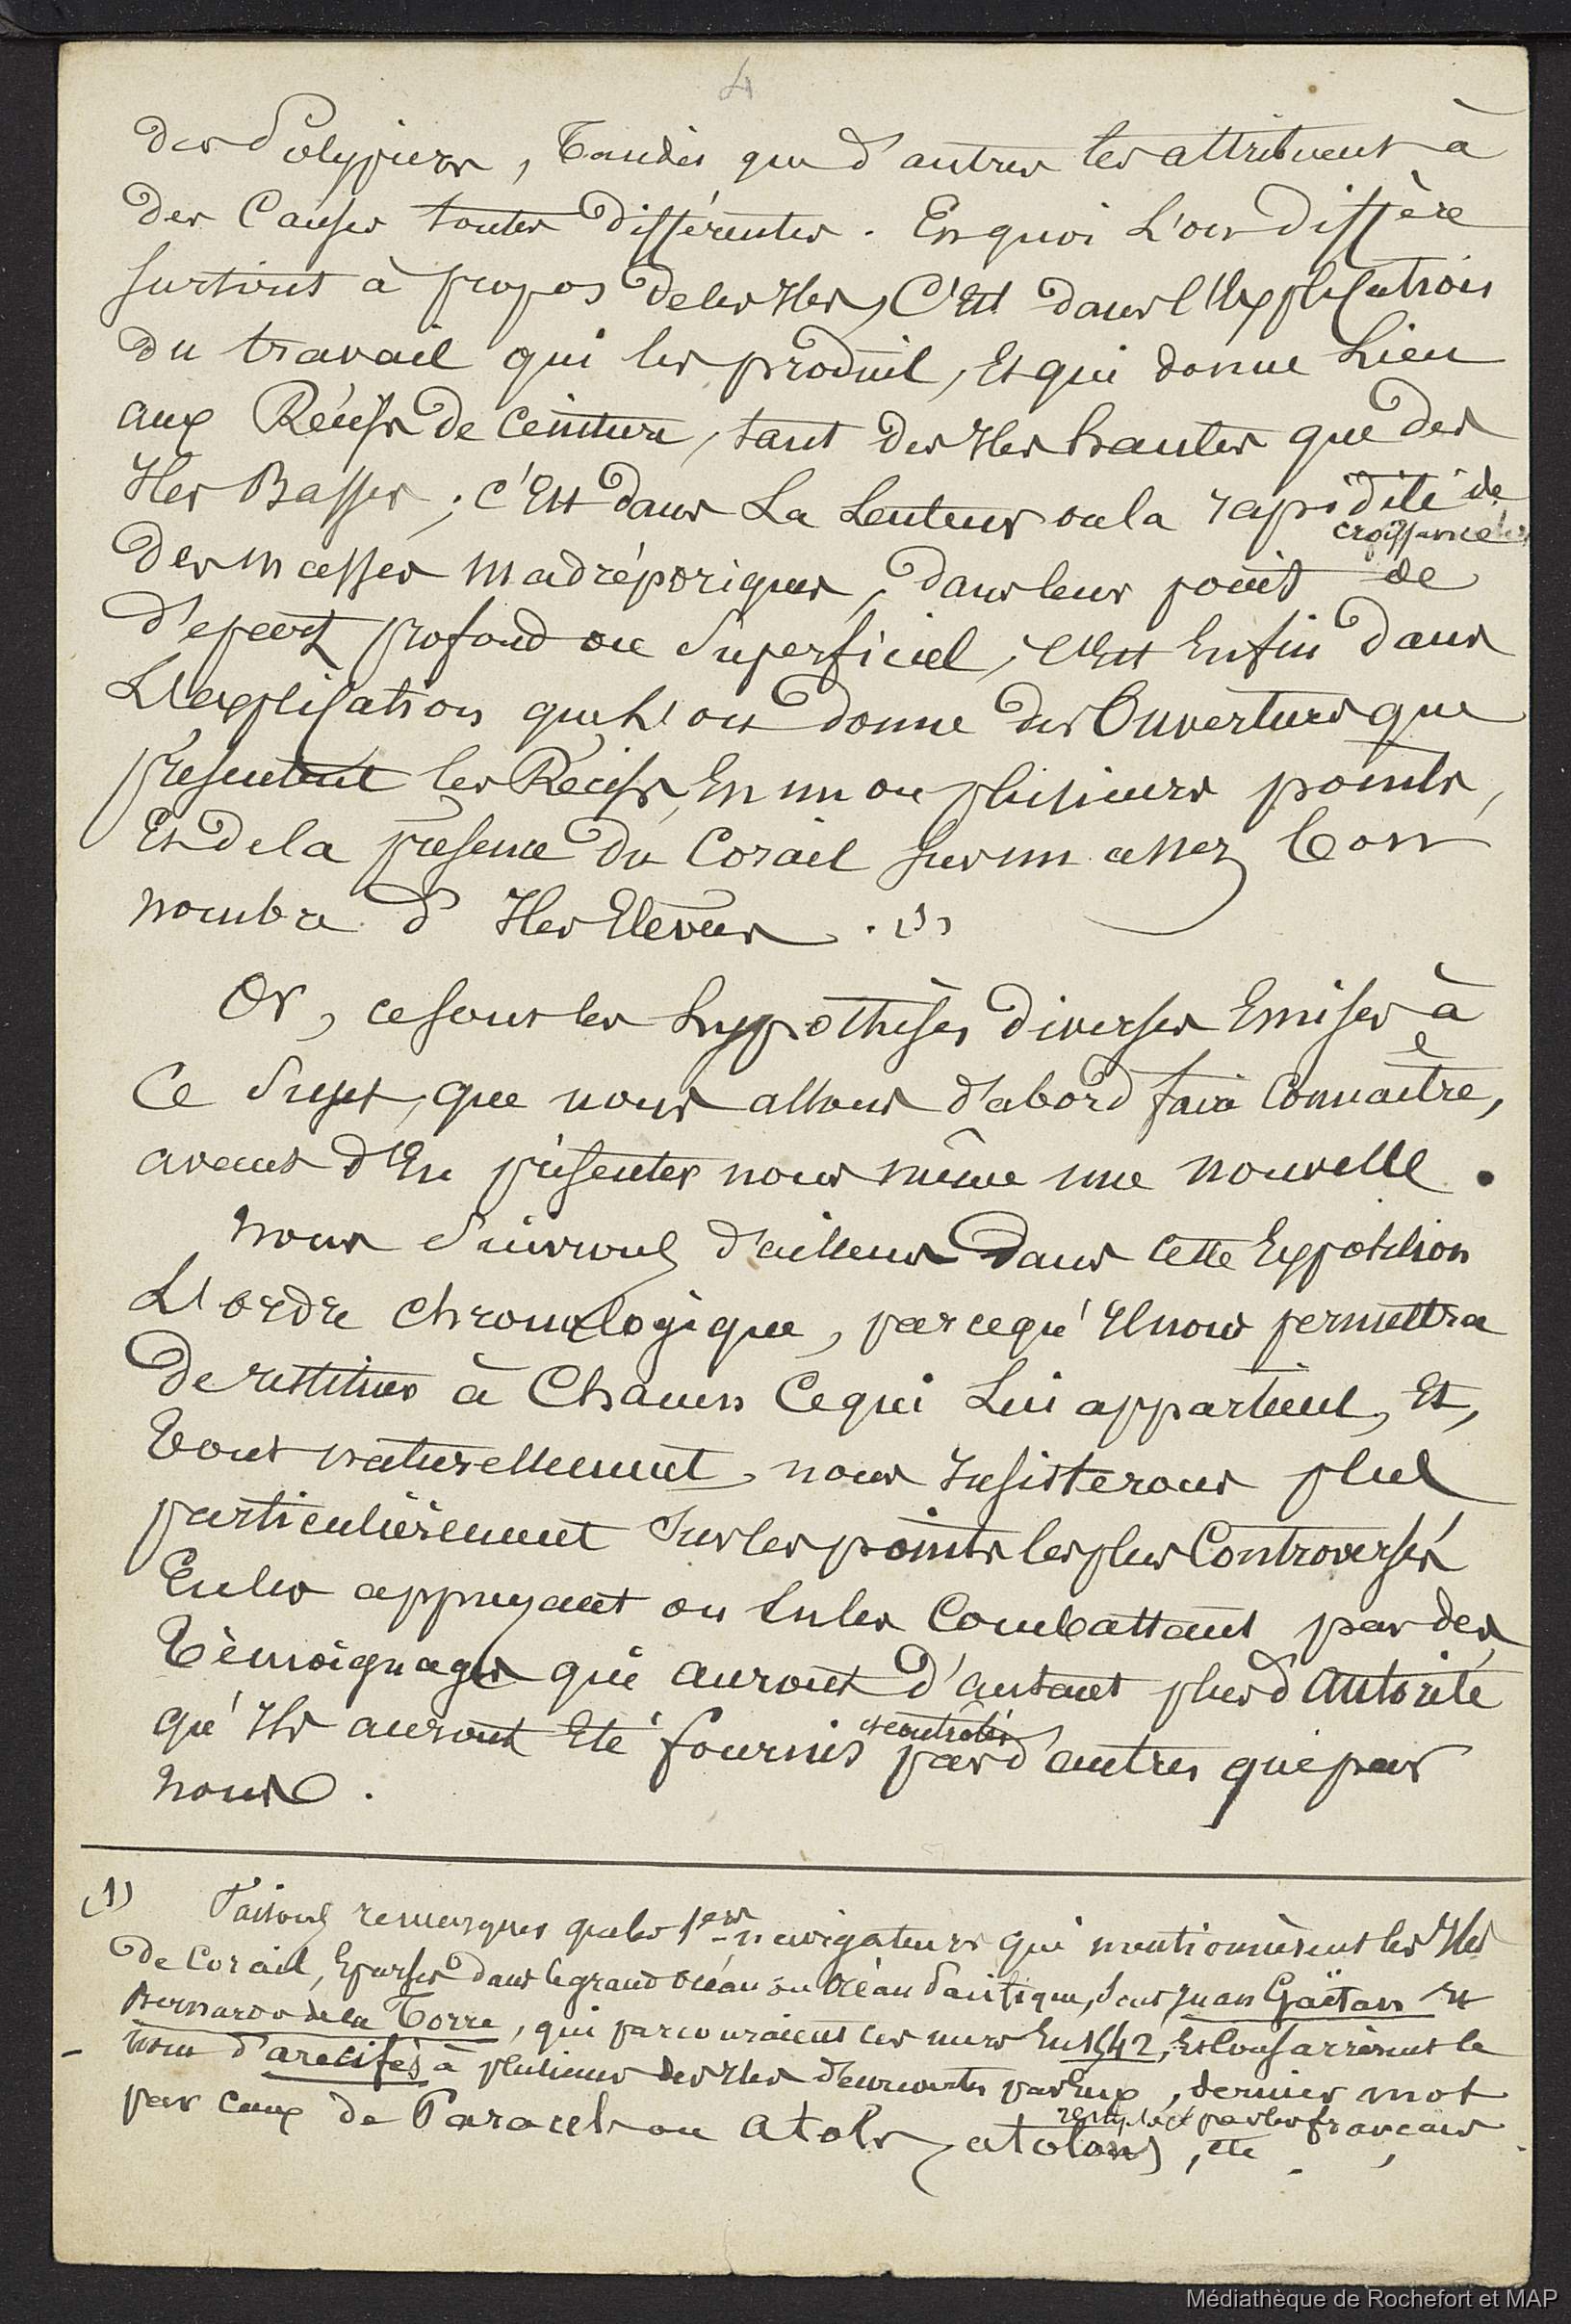 4
des Polypiers, tandis que d'autres les attribuent à
des Causes toutes différentes. En quoi L'on diffère
surtout à propos de les Iles, C'est dans l'Explication
du travail qui les produit, et qui donne Lieu
aux Récifs de Ceinture, tant des Iles hautes que des
Iles Basses ; C'est dans La Lenteur ou la rapidité de
croissance
des masses madréporiques, dans leur point de
départ profond ou Superficiel, C'est Enfin dans
L'explication que L'on donne des Ouvertures que
présentent les Récifs, En un ou plusieurs points,
Et de la présence du Corail sur un assez bon
nombre d'Iles Elevées. (1)
Or, ce sont les hypothèses diverses Emises à
Ce Sujet, que nous allons d'abord faire Connaitre,
avant d'En présenter nous même une nouvelle.
Nous Suivrons d'ailleurs dans cette Exposition
L'ordre chronologique, parce qu'Il nous permettra
de restituer à Chacun Ce qui Lui appartient, Et,
tout naturellement, nous Insisterons plus
particulièrement Sur les points les plus Controversés
En les appuyant ou En les Combattant par des
témoignages qui auront d'autant plus d'autorité
qu'Ils auront Eté fournis par d'autres que par
nous.
(1) Faisons remarquer que les 1ers navigateurs qui mentionnèrent les Iles
de Corail, Eparses dans le grand Océan ou Océan Pacifique, sont Juan Gaëtan et
Bernardo de la Torre, qui parcouraient ces mers En 1542, Et Consacrèrent le
nom d'arecifes à plusieurs des Iles découvertes par Eux, dernier mot
remplacé par les français
par ceux de Paracels ou atols, atolons, etc.
Médiathèque de Rochefort et MAP